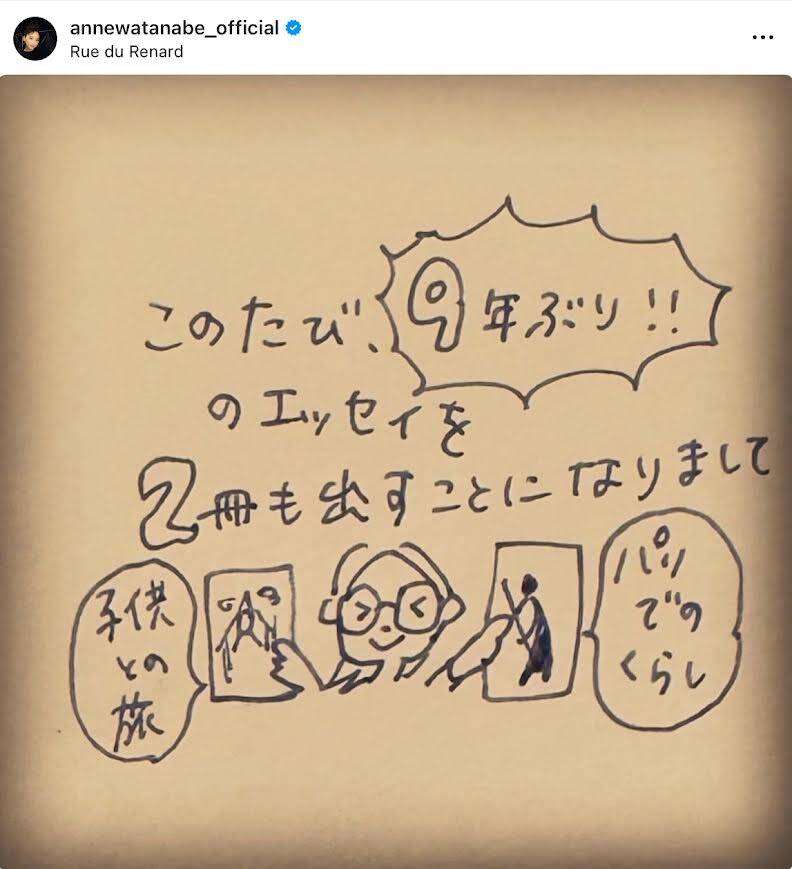 annewatanabe_official
Rue du Renard
このたび、9年ぶり!!
のエッセイを
2冊も出すことになりまして
子供
との
旅
パリ
での
くらし